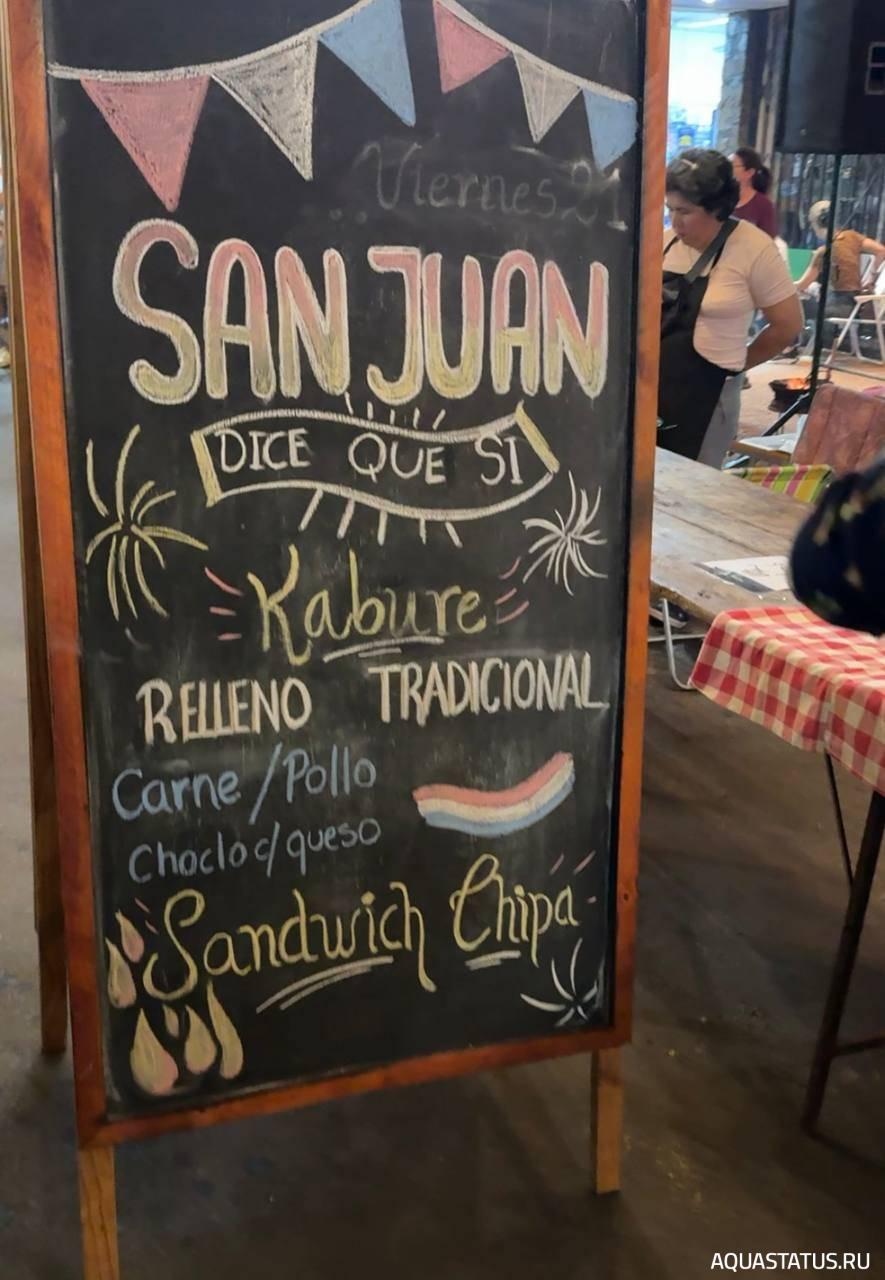 ...Viernes 21
SAN JUAN
DICE QUE SI
Kabure
RELLENO TRADICIONAL
Carne/Pollo
Choclo c/queso
Sandwich Chipa
AQUASTATUS.RU